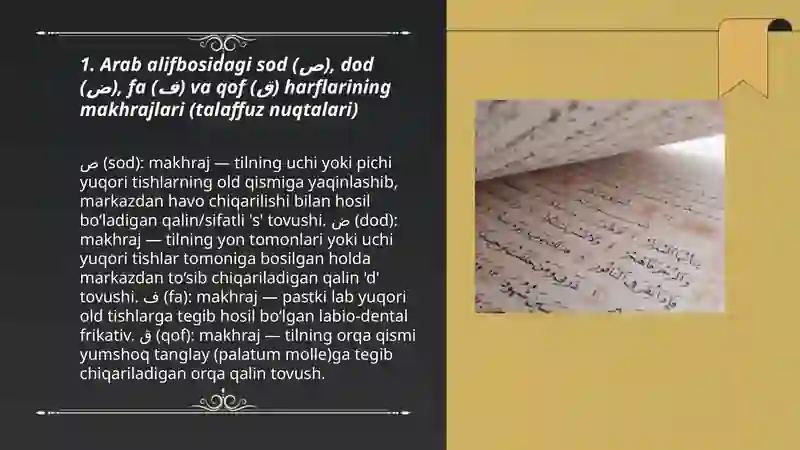 1. Arab alifbosidagi sod (ص), dod
(ض), fa (ف) va qof (ق) harflarining
makhrajlari (talaffuz nuqtalari)
ص (sod): makhraj — tilning uchi yoki pichi
yuqori tishlarning old qismiga yaqinlashib,
markazdan havo chiqarilishi bilan hosil
bo‘ladigan qalin/sifatli 's' tovushi. ض (dod):
makhraj — tilning yon tomonlari yoki uchi
yuqori tishlar tomoniga bosilgan holda
markazdan to‘sib chiqariladigan qalin 'd'
tovushi. ف (fa): makhraj — pastki lab yuqori
old tishlarga tegib hosil bo‘lgan labio-dental
frikativ. ق (qof): makhraj — tilning orqa qismi
yumshoq tanglay (palatum molle)ga tegib
chiqariladigan orqa qalin tovush.